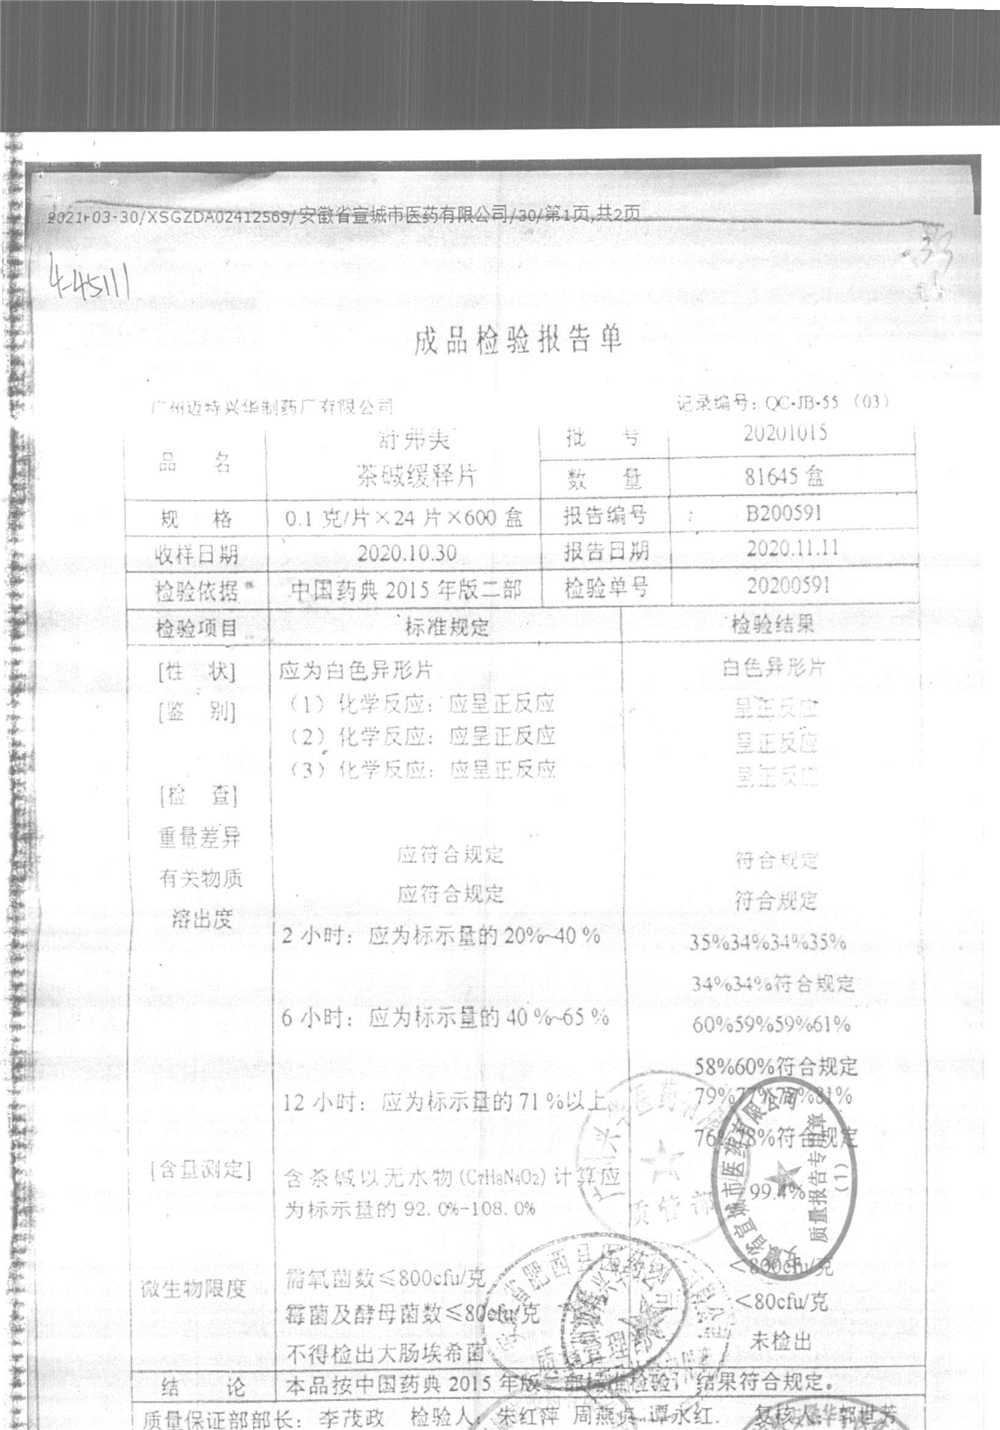 2021-03-30/XSGZDA02412569/安徽省宣城市医药有限公司/30/第1页,共2页
4-45111
33
成品检验报告单
广州迈特兴华制药厂有限公司 记录编号：QC-JB-55（03）
品 名 舒弗美 茶碱缓释片 批 号 20201015
数 量 81645 盒
规 格 0.1 克/片×24 片×600 盒 报告编号 : B200591
收样日期 2020.10.30 报告日期 2020.11.11
检验依据 中国药典 2015 年版二部 检验单号 20200591
检验项目 标准规定 检验结果
[性 状] 应为白色异形片 白色异形片
[鉴 别] （1）化学反应：应呈正反应 呈正反应
（2）化学反应：应呈正反应 呈正反应
（3）化学反应：应呈正反应 呈正反应
[检 查]
重量差异 应符合规定 符合规定
有关物质 应符合规定 符合规定
溶出度
2 小时：应为标示量的 20%~40 % 35%34%34%35%
34%34%符合规定
6 小时：应为标示量的 40 %~65 % 60%59%59%61%
58%60%符合规定
12 小时：应为标示量的 71 %以上 79%77%79%81%
76%78%符合规定
[含量测定] 含茶碱以无水物(C7H8N4O2)计算应 99.4%
为标示量的 92.0%-108.0%
微生物限度 需氧菌数≤800cfu/克 <800cfu/克
霉菌及酵母菌数≤80cfu/克 <80cfu/克
不得检出大肠埃希菌 未检出
结 论 本品按中国药典 2015 年版二部标准检验，结果符合规定。
质量保证部部长：李茂政 检验人：朱红萍 周燕贞 谭永红. 复核人：华郭世芳
安徽省宣城市医药有限公司
质量报告专用章
（1）
质管部